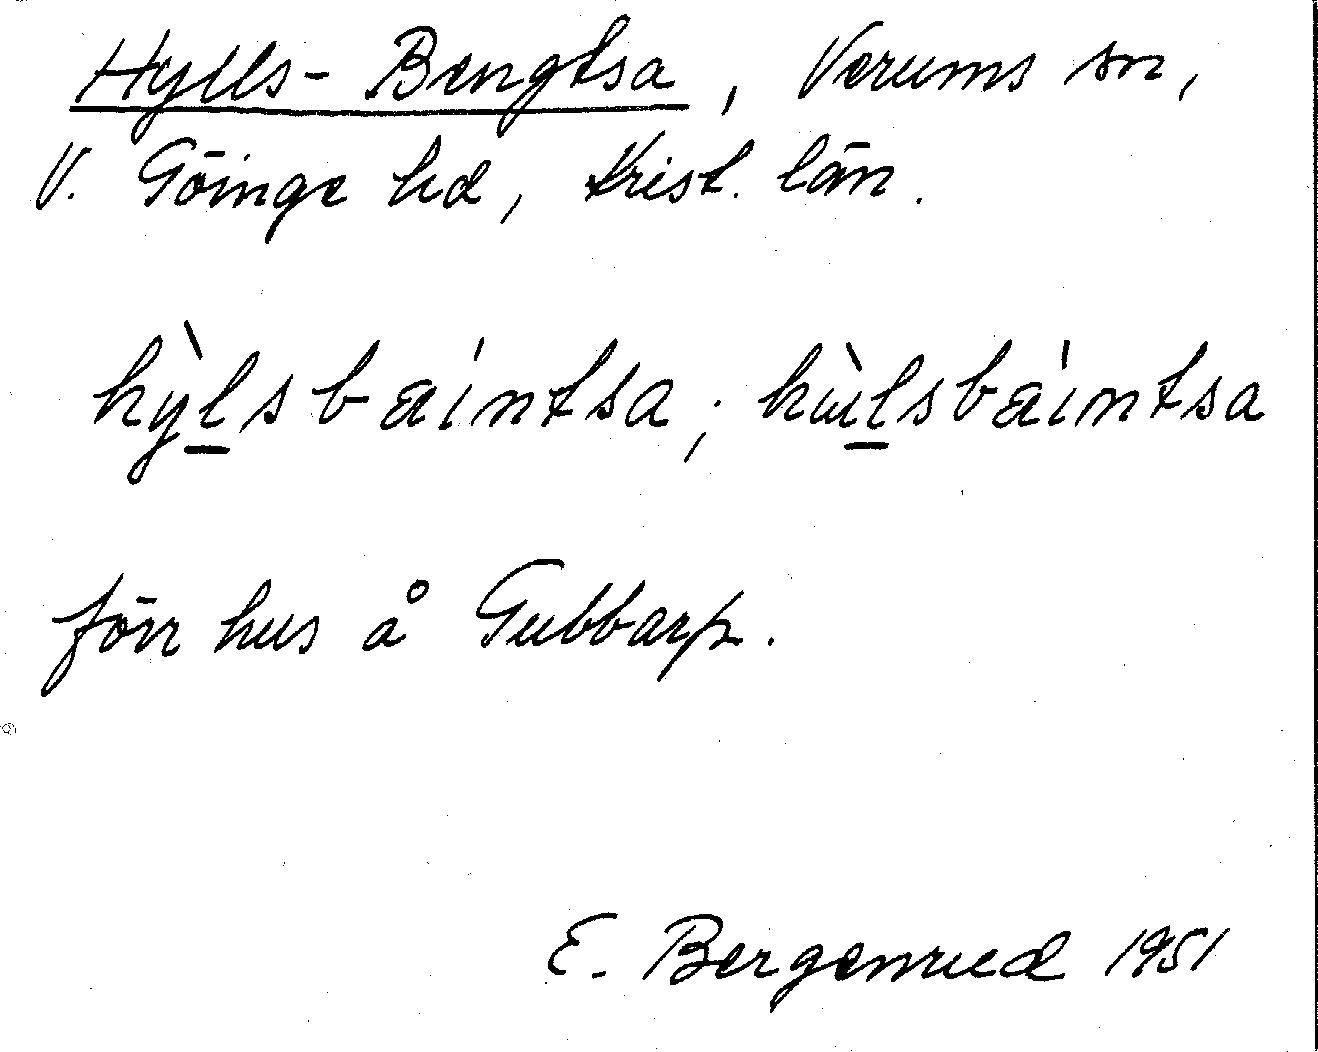 Hylls-Bengtsa, Verums sn,
V. Göinge hd, Krist. län.
hỳlsbaíntsa; hùlsbaíntsa
förr hus å Gubbarp.
E. Bergenrud 1951